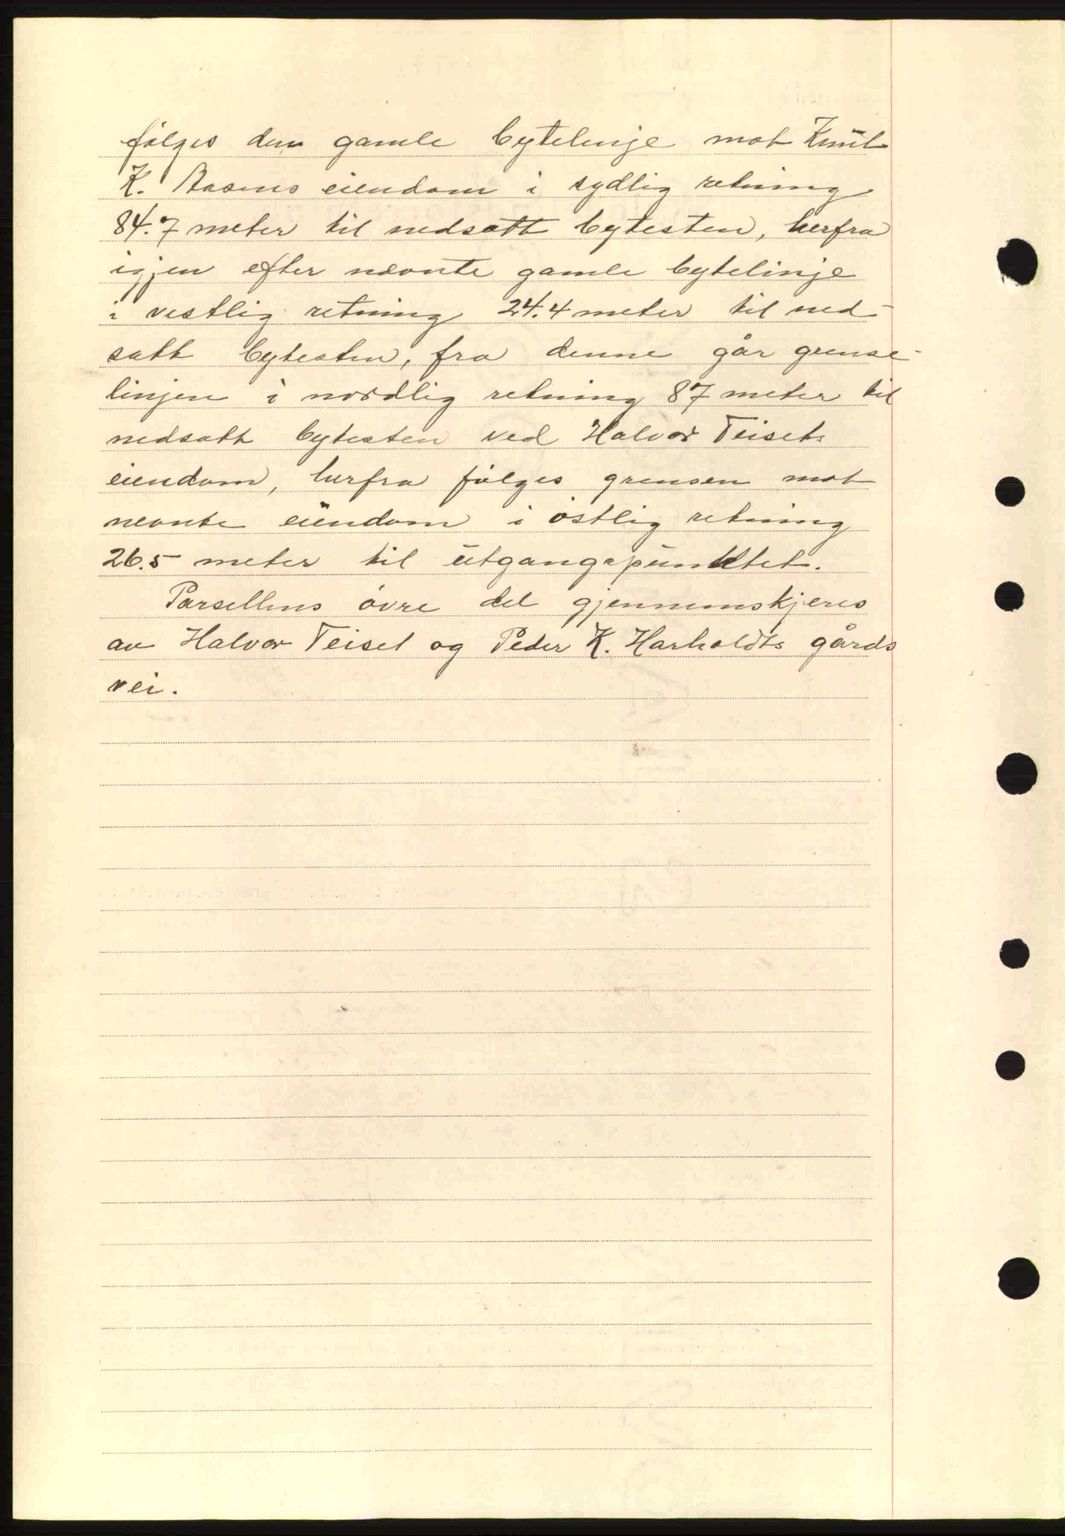 følges den gamle bytelinje mot Knut
K. Aasens eiendom i sydlig retning
84.7 meter til nedsatt bytesten, herfra
igjen efter nevnte gamle bytelinje
i vestlig retning 24.4 meter til ned-
satt bytesten, fra denne går grense-
linjen i nordlig retning 87 meter til
nedsatt bytesten ved Halvor Teisets
eiendom, herfra følges grensen mot
nevnte eiendom i østlig retning
26.5 meter til utgangspunktet.
Parsellens øvre del gjennemskjeres
av Halvor Teiset og Peder K. Harholdts gårds
vei.